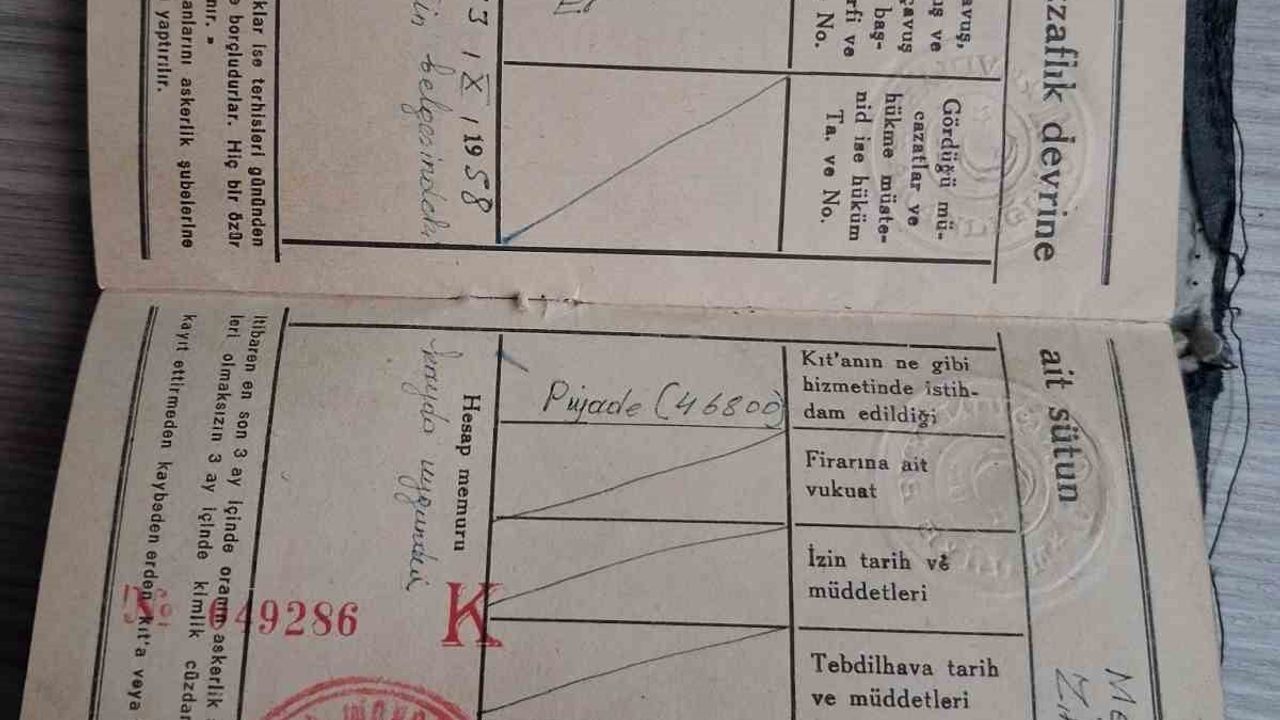 zzaflık devrine
avuş,
ş ve
baş-
çavuş
rfi ve
No.
Gördüğü mü-
cazatlar ve
hükme müste-
nid ise hüküm
Ta. ve No.
3 / X / 1958
in belgesindeki
klar ise terhisleri gününden
borçludurlar. Hiç bir özür
nır. »
anlarını askerlik şubelerine
yaptırılır.
ait sütun
Kıt'anın ne gibi
hizmetinde istih-
dam edildiği
Piyade (46800)
Firarına ait
vukuat
İzin tarih ve
müddetleri
Tebdilhava tarih
ve müddetleri
Hesap memuru
kayda uygundur
K
No 049286
itibaren en son 3 ay içinde oranın askerlik
leri olmaksızın 3 ay içinde kimlik cüzdan
kayıt ettirmeden kaybeden erden kıt'a veya